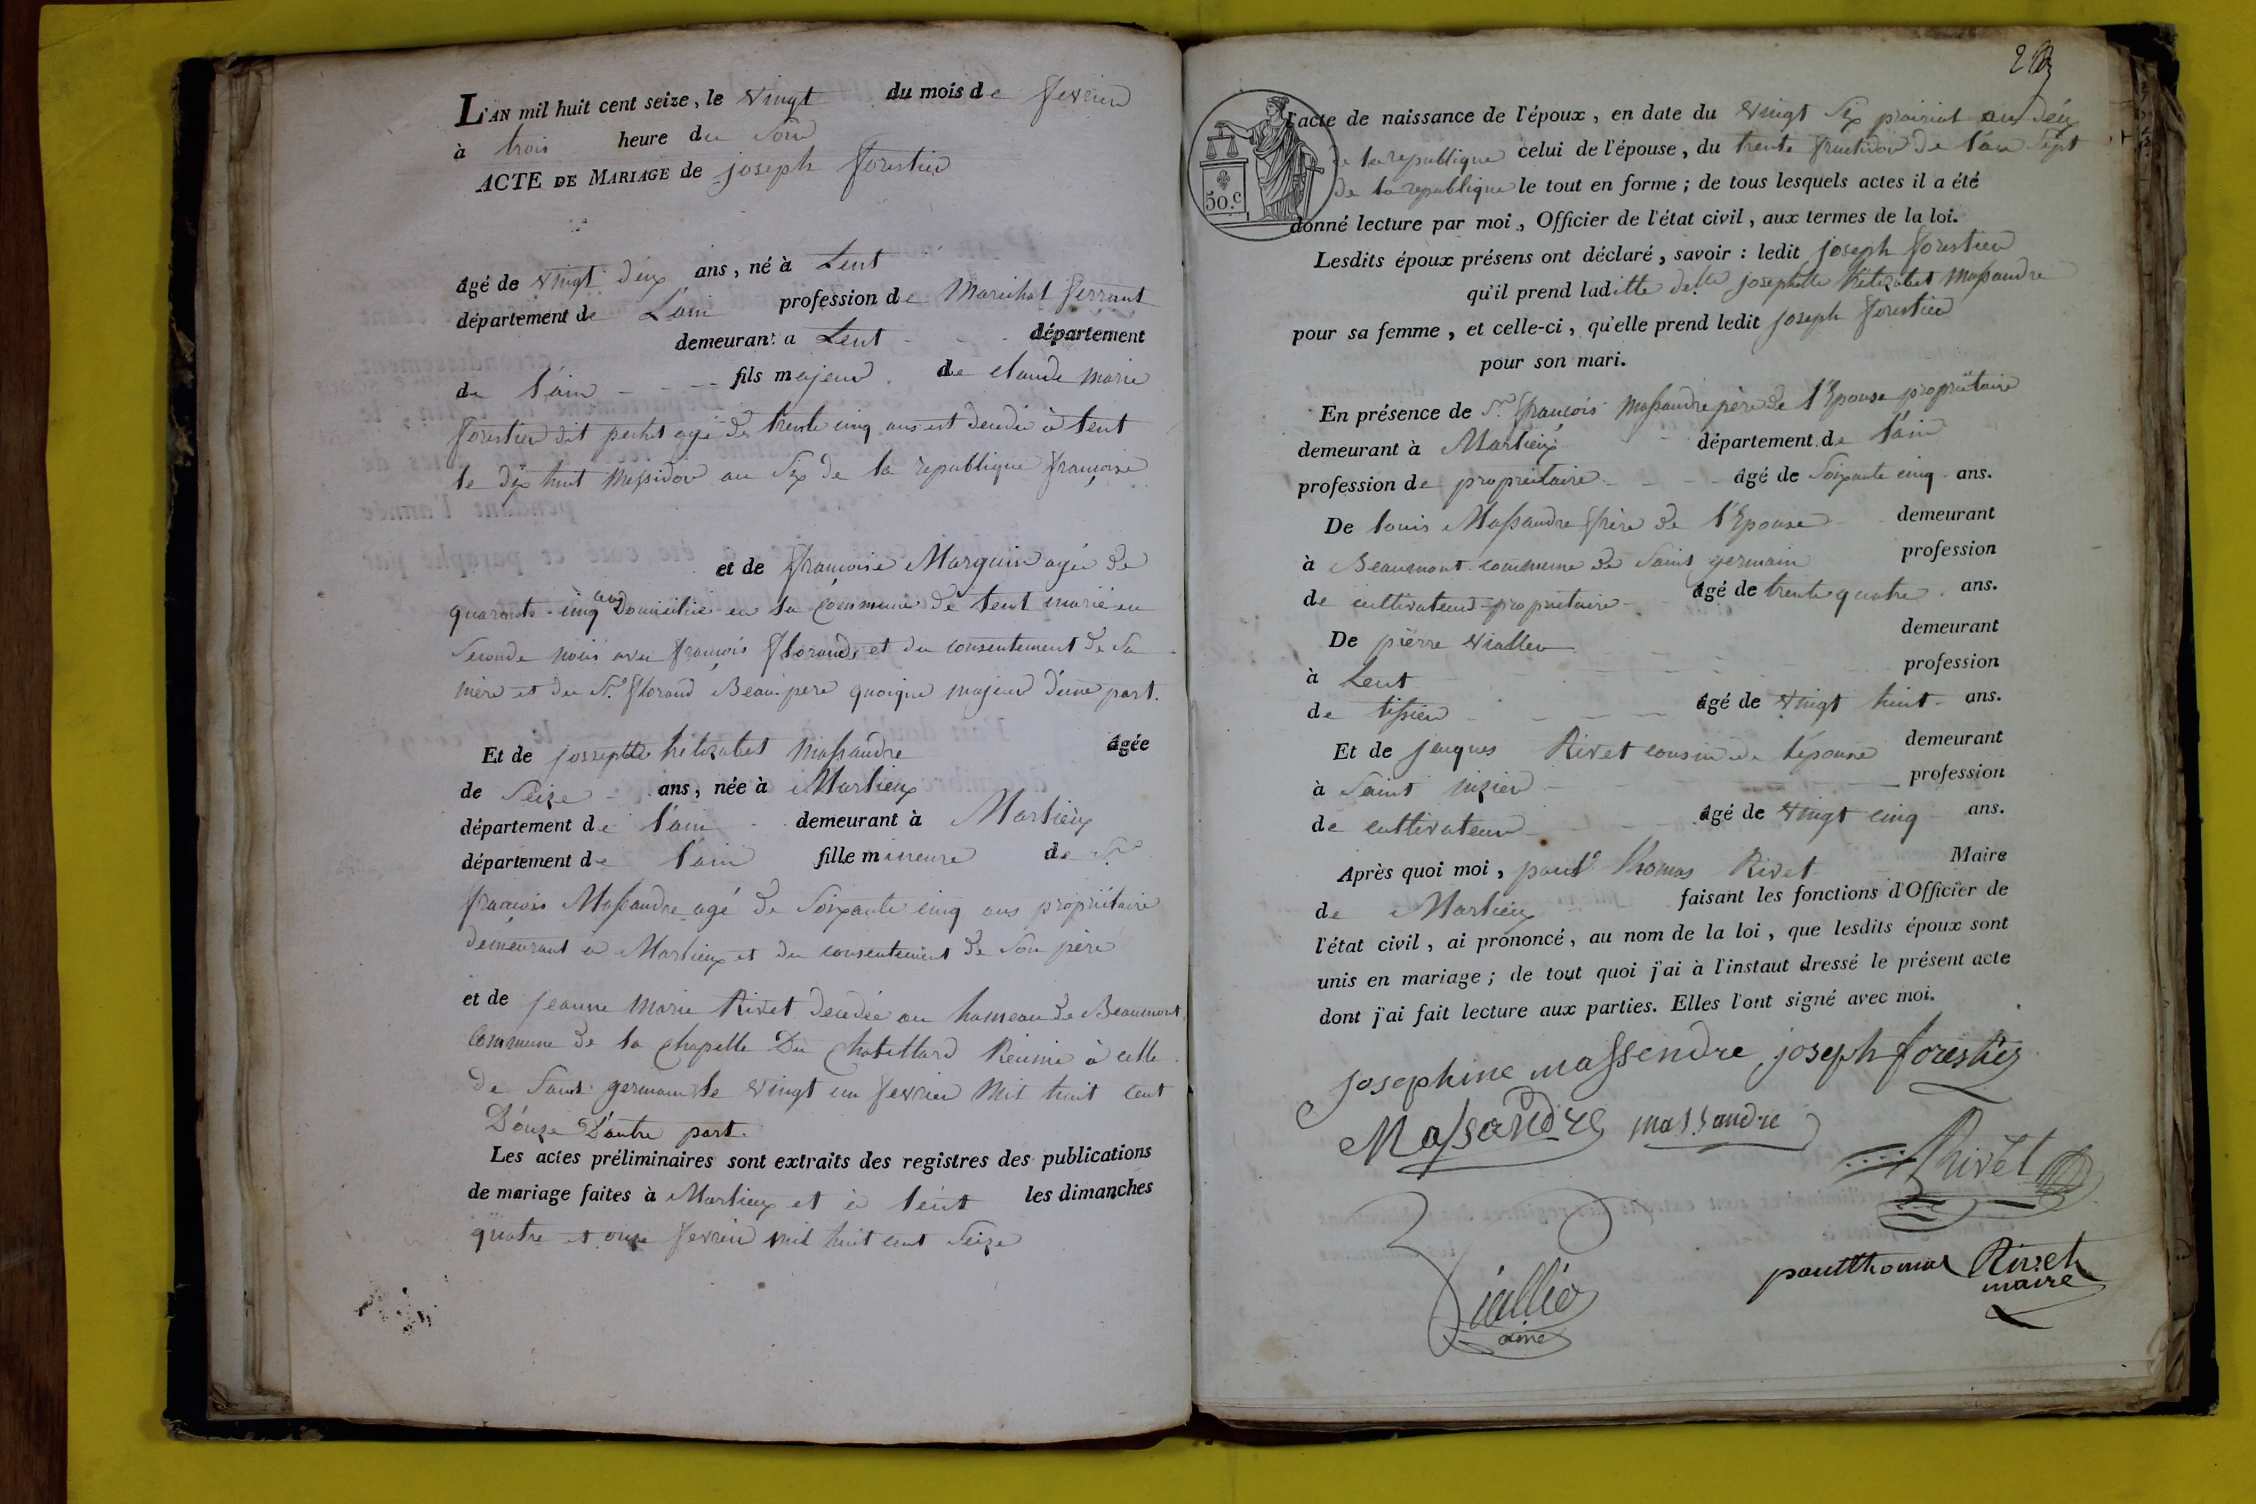 L'AN mil huit cent seize, le vingt du mois de fevrier
à trois heure du Soir
ACTE DE MARIAGE de joseph forestier
âgé de vingt deux ans, né à Lent
département de L'ain profession de Marechal ferrant
demeurant a Lent département
de l'ain fils majeur de claude marie
forestier dit petit agé de trente cinq ans est decedé à lent
le dix huit Messidor an Six de la republique françoise
et de françoise Marguin agée de
quarante cinq ans Domicilié en la Commune de lent marié en
Seconde nôus avec françois florand et du consentement de Sa
mère et du Sr. florand Beau pere quoique majeur d'une part.
Et de josseptte helizabet Massandre âgée
de Seize ans, née à Marlieux
département de l'ain demeurant à Marlieux
département de l'ain fille mineure de Sr.
françois Massandre agé de Soixante cinq ans propriétaire
demeurant à Marlieux et du consentement de Son père
et de jeanne marie Rivet decedée au hameau de Beaumont
Commune de la Chapelle Du Chatellard Reunie à celle
de Saint germain le vingt un fevrier Mil huit cent
Douze D'autre part.
Les actes préliminaires sont extraits des registres des publications
de mariage faites à Marlieux et à lent les dimanches
quatre et onze fevrier mil huit cent Seize
l'acte de naissance de l'époux, en date du vingt Six prairial an deux
de la republique celui de l'épouse, du trente fructidor de l'an Sept
de la republique le tout en forme; de tous lesquels actes il a été
50.c
donné lecture par moi, Officier de l'état civil, aux termes de la loi.
Lesdits époux présens ont déclaré, savoir: ledit joseph forestier
qu'il prend laditte delle josephette helizabet Massandre
pour sa femme, et celle-ci, qu'elle prend ledit joseph forestier
pour son mari.
En présence de Sr. françois Massandre père de l'Epouse propriétaire
demeurant à Marlieux département de l'ain
profession de proprietaire âgé de Soixante cinq ans.
De louis Massandre frère de l'Epouse demeurant
à Beaumont commune de Saint germain profession
de cultivateur propriétaire âgé de trente quatre ans.
De pierre viallier demeurant
à Lent profession
de tissier âgé de vingt huit ans.
Et de jacques Rivet cousin de l'épouse demeurant
à Saint nizier profession
de cultivateur âgé de vingt cinq ans.
Après quoi moi, paul thomas Rivet Maire
de Marlieux faisant les fonctions d'Officier de
l'état civil, ai prononcé, au nom de la loi, que lesdits époux sont
unis en mariage; de tout quoi j'ai à l'instant dressé le présent acte
dont j'ai fait lecture aux parties. Elles l'ont signé avec moi.
josephine massendre joseph forestier
Massandre massandre
Rivet
paulthomas Rivet
maire
Viallier
ainé